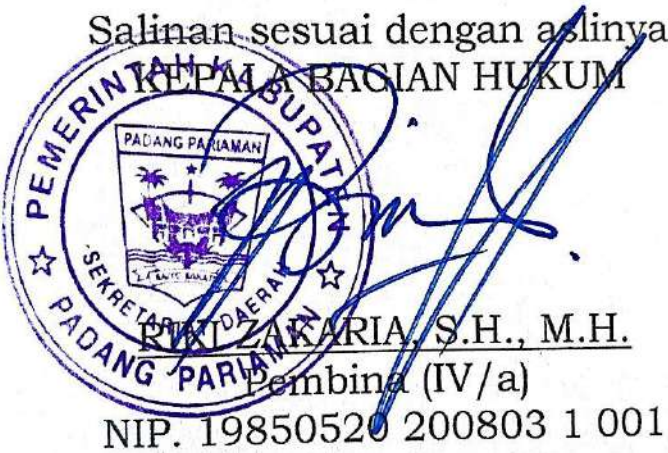 Salinan sesuai dengan aslinya
KEPALA BAGIAN HUKUM
PEMERINTAH KABUPATEN
PADANG PARIAMAN
SEKRETARIAT DAERAH
PADANG PARIAMAN
ZAKARIA, S.H., M.H.
Pembina (IV/a)
NIP. 19850520 200803 1 001